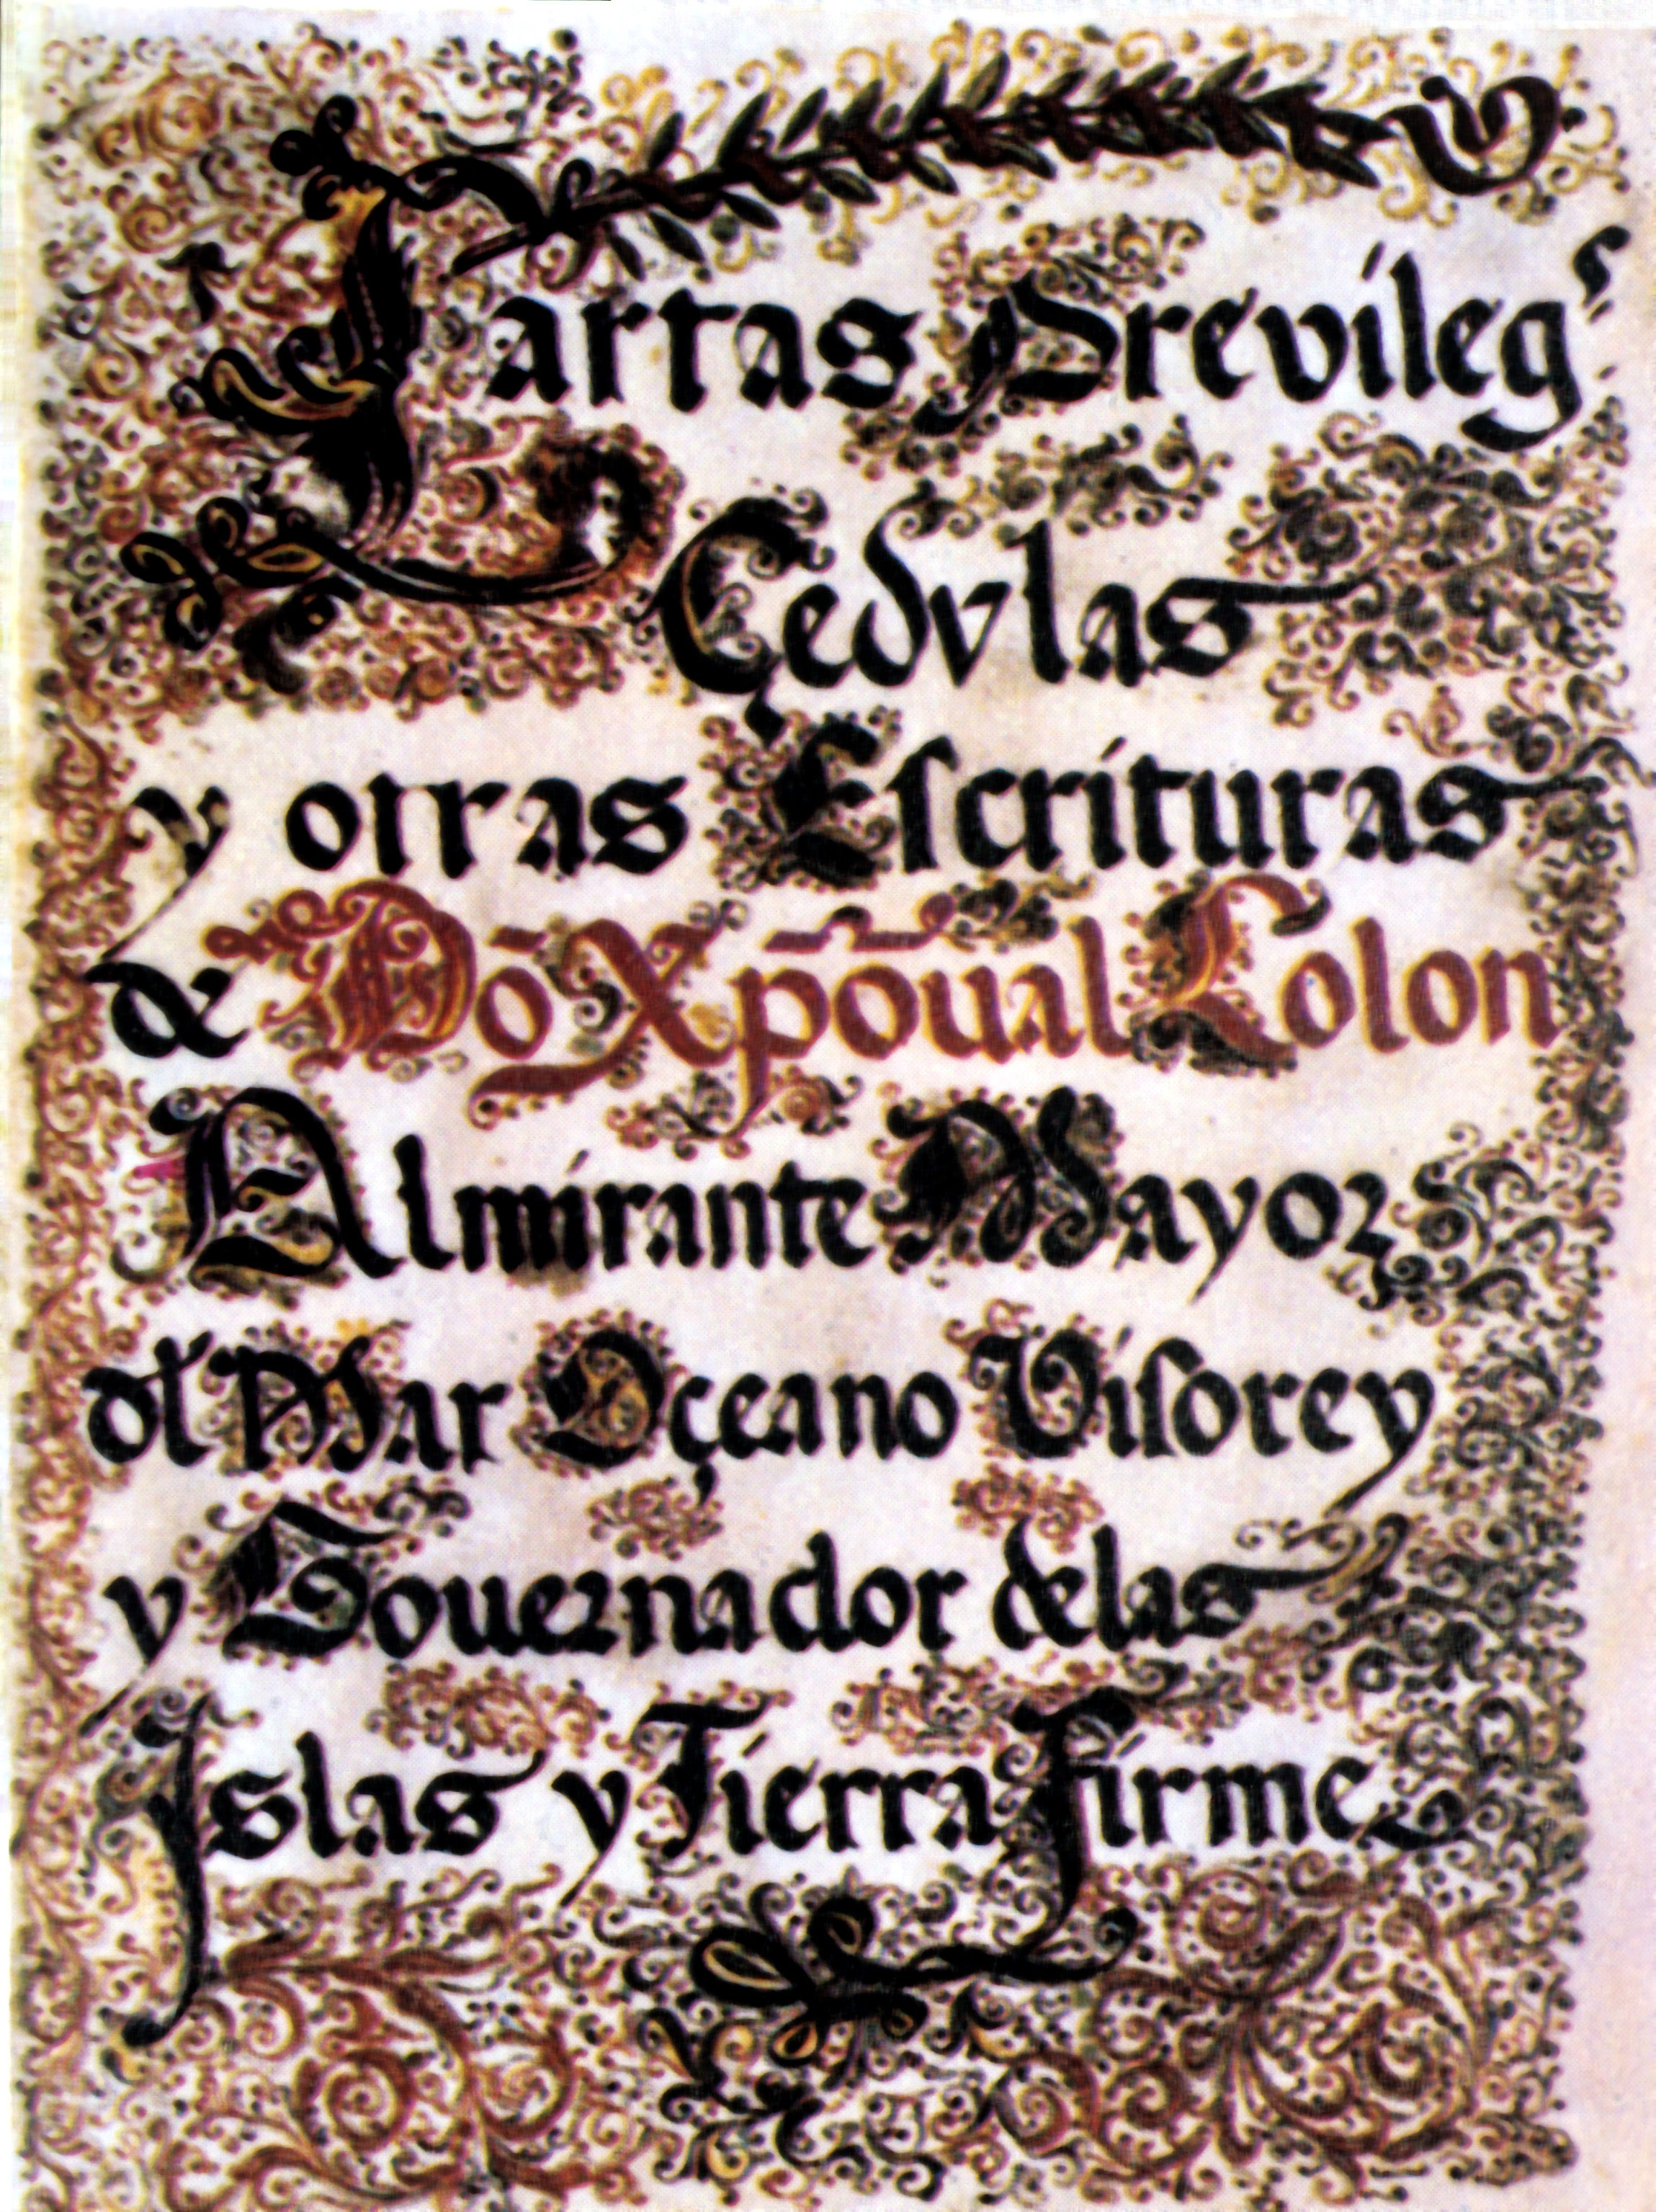 Cartas Previlegs
Çedvlas
y otras Escrituras
de Dō Xpōual Colon
Almirante Mayor
dl Mar Oçeano Visorey
y Gouernador delas
Yslas y Tierra Firme